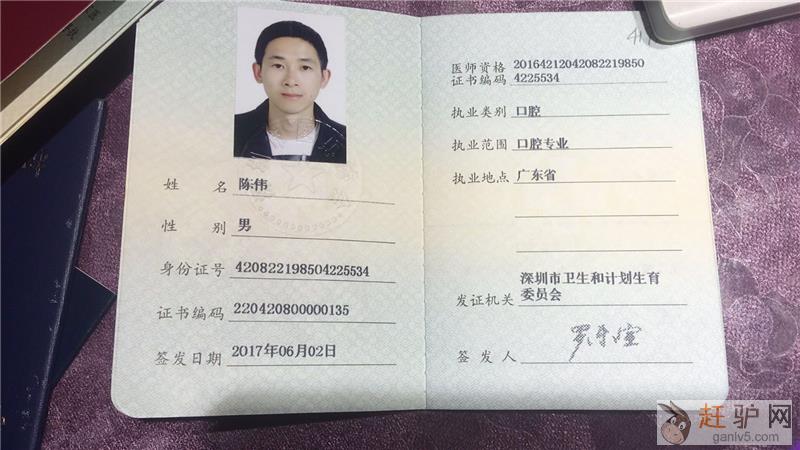 姓 名 陈伟
性 别 男
身份证号 420822198504225534
证书编码 220420800000135
签发日期 2017年06月02日
医师资格 20164212042082219850
证书编码 4225534
执业类别 口腔
执业范围 口腔专业
执业地点 广东省
发证机关 深圳市卫生和计划生育
委员会
签 发 人
赶驴网
ganlv5.com